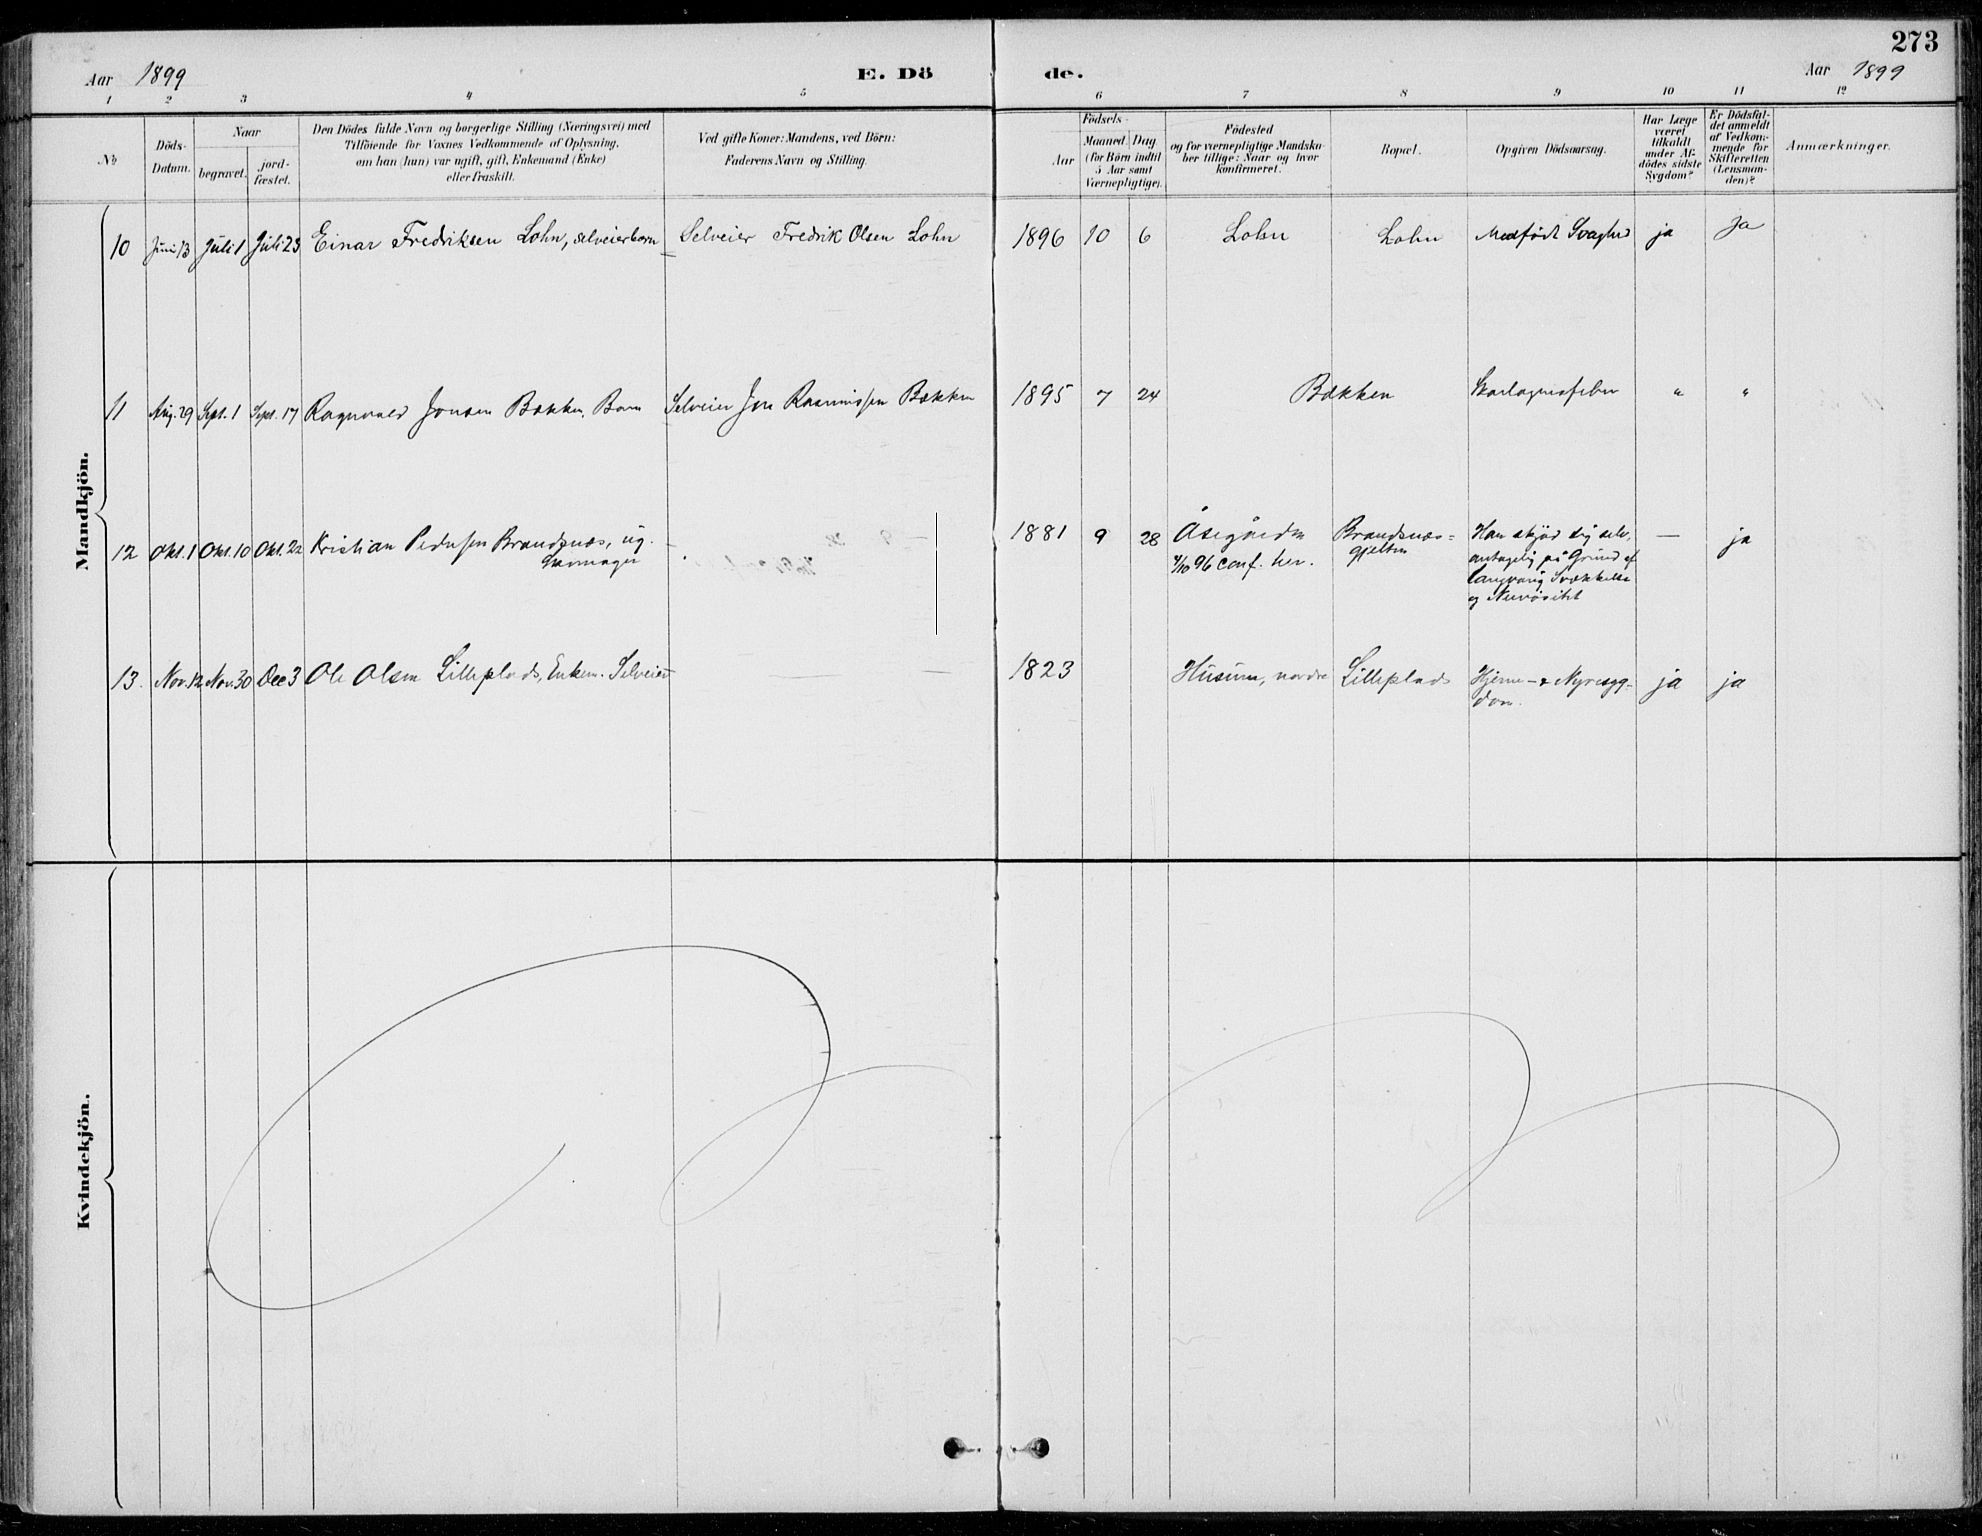 273
Aar 1899 E. Dö de. Aar 1899
1 2 3 4 5 6 7 8 9 10 11 12
№
Döds-
Datum.
Naar
begravet.
jord-
fæstet.
Den Dödes fulde Navn og borgerlige Stilling (Næringsvei) med
Tilföiende for Voxnes Vedkommende af Oplysning,
om han (hun) var ugift, gift, Enkemand (Enke)
eller fraskilt.
Ved gifte Koner: Mandens, ved Börn:
Faderens Navn og Stilling.
Födsels-
Aar
Maaned. Dag
(for Börn indtil
5 Aar samt
Værnepligtige).
Födested
og for værnepligtige Mandska-
ber tillige: Naar og hvor
konfirmeret.
Bopæl.
Opgiven Dödsaarsag.
Har Læge
været
tilkaldt
under Af-
dödes sidste
Sygdom?
Er Dödsfal-
det anmeldt
af Vedkom-
mende for
Skifteretten
(Lensman-
den)?
Anmærkninger.
Mandkjön.
10 Juni 13 Juli 1 Juli 23 Einar Fredriksen Lohn, selveierbarn Selveier Fredrik Olsen Lohn 1896 10 6 Lohn Lohn Medfødt Svaghed ja Ja
11 Aug. 29 Sept. 1 Sept. 17 Ragnvald Jonsen Bækken, Barn Selveier Jon Rasmussen Bækken 1895 7 24 Bækken Skarlagensfeber " "
12 Okt. 1 Okt. 10 Okt. 22 Kristian Pedersen Brandsnæs, ug. — 1881 9 28 Åsegården Brandsnæs- Han skjød sig selv, — ja
4/10 96 conf. her. antagelig på Grund af
langvarig Svækkelse
og Nervøsitet
13. Nov. 12 Nov. 30 Dec 3 Ole Olsen Lilleplads, Enkem. Selveier — — 1823 Husum, nordre Lilleplads Hjerne- & Nyresyg- ja ja
dom.
Kvindekjön.